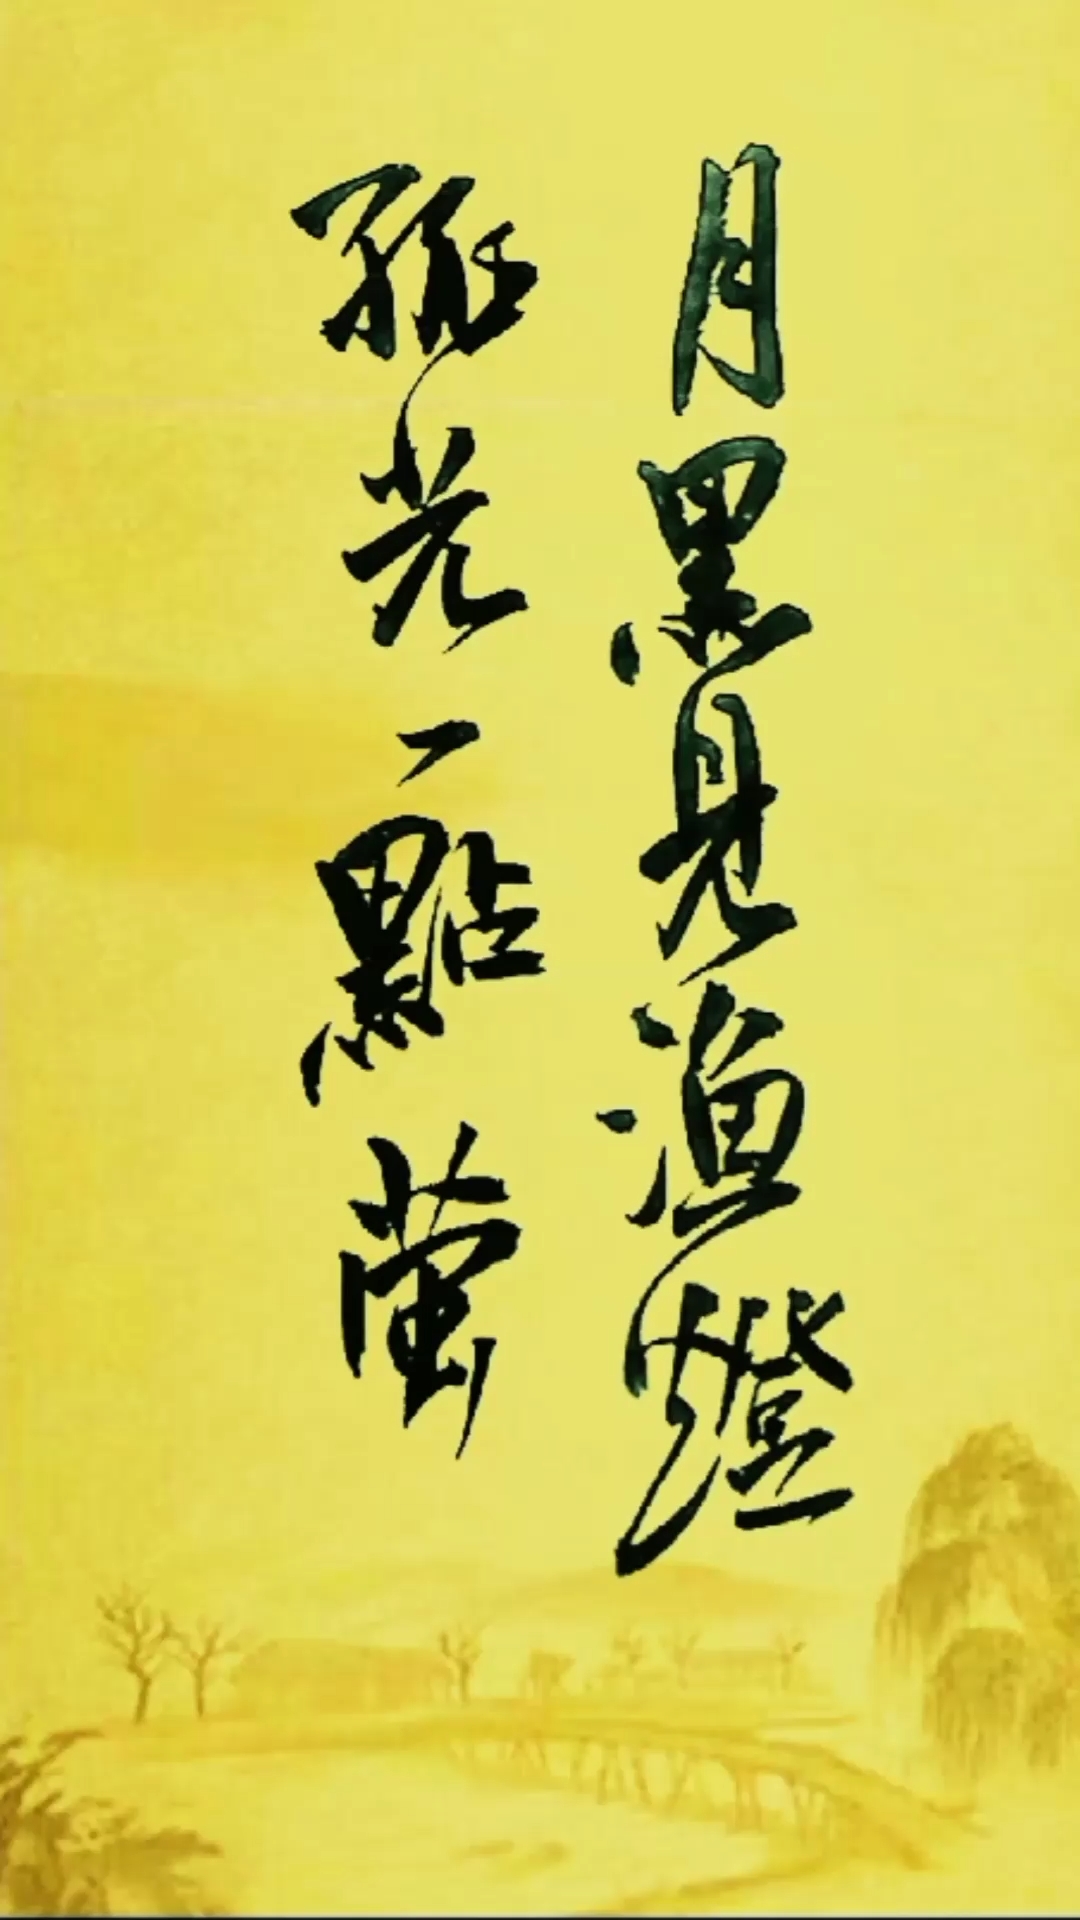 月黑見漁燈
孤光一點螢